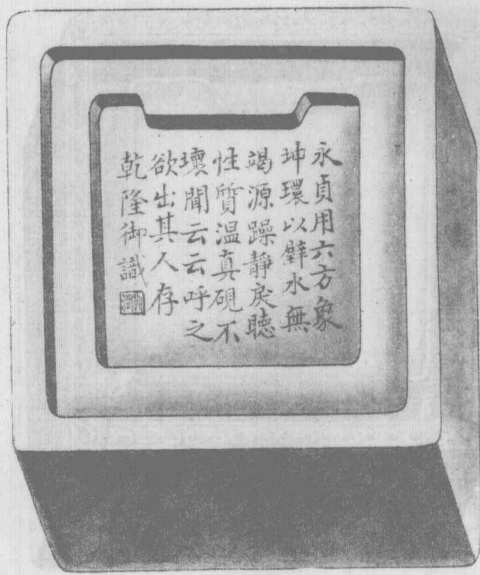 永貞用六方象
坤環以辟水無
竭源躁靜戾聽
性質温真硯不
壞聞云云呼之
欲出其人存
乾隆御識